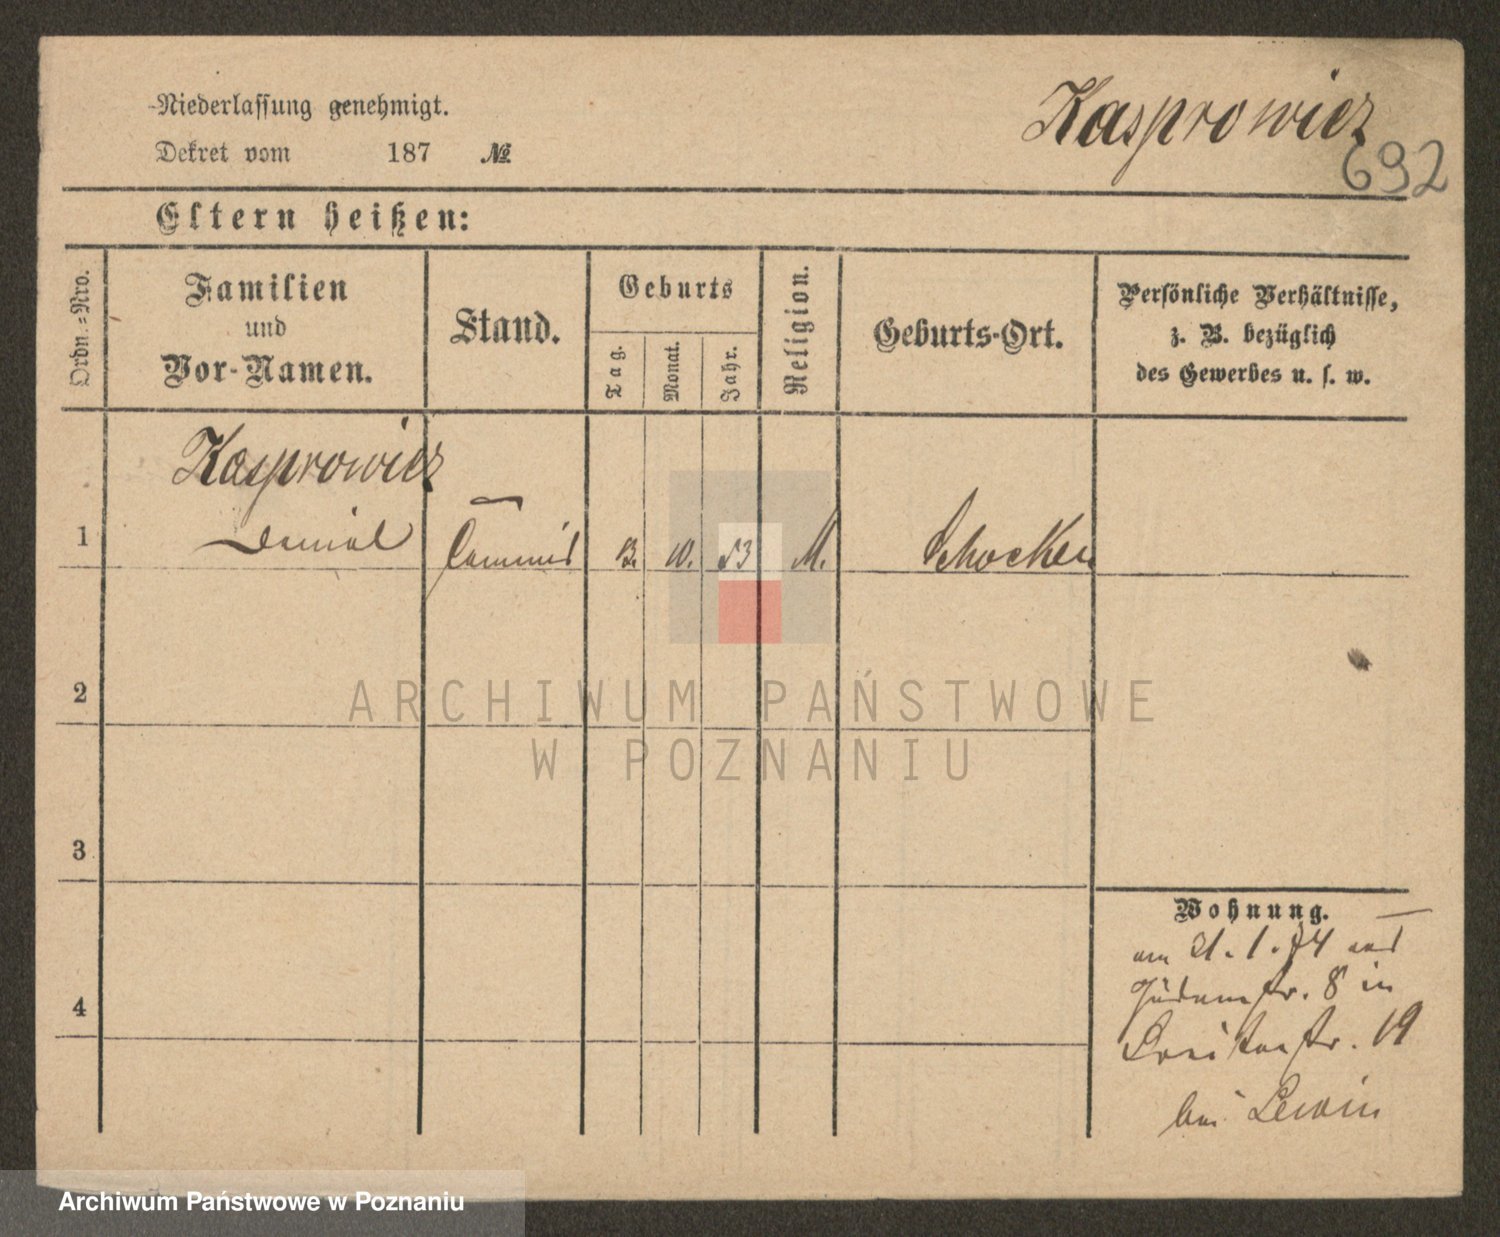 Niederlassung genehmigt.
Dekret vom 187 №
Kasprowicz
692
Eltern heißen:
Ordn.-Nro.
Familien
und
Vor-Namen.
Stand.
Geburts
Tag.
Monat.
Jahr.
Religion.
Geburts-Ort.
Persönliche Verhältnisse,
z. B. bezüglich
des Gewerbes u. s. w.
Kasprowicz
1 Daniel Commis 53 M. Schocken
2
3
4
Wohnung.
am 21.1.74 aus
Judenstr. 8 in
Breitestr. 19
bei Lewin
ARCHIWUM PAŃSTWOWE
W POZNANIU
Archiwum Państwowe w Poznaniu